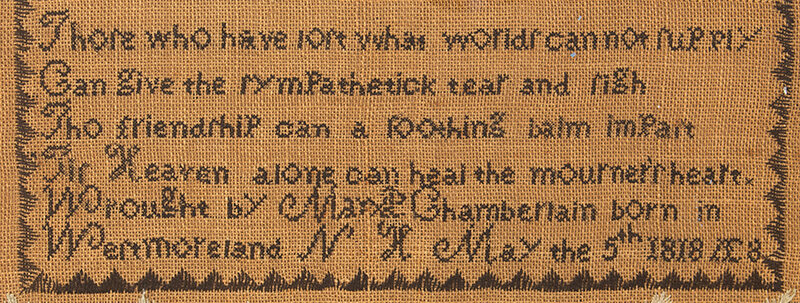 Thoſe who have loſt what worldſ can not ſupply
Can give the ſympathetick tear and ſigh
Tho friendſhip can a ſoothing balm impart
Tiſ Heaven alone can heal the mournerſ heart.
Wrought by Mary Chamberlain born in
Weſtmoreland N H May the 5th 1818 Æ 8